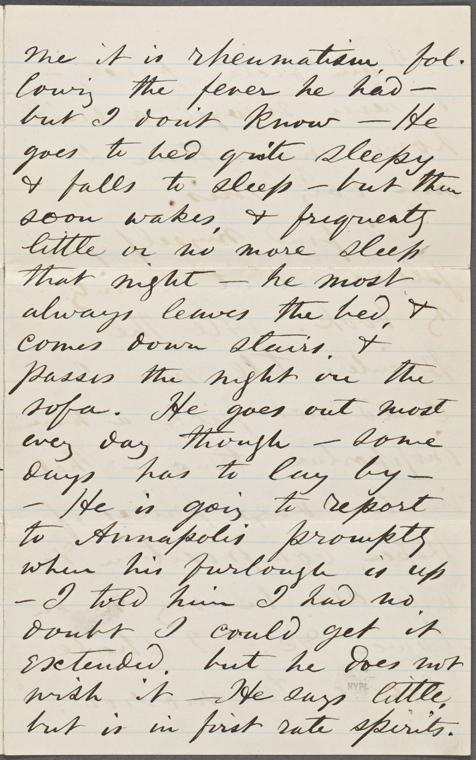 me it is rheumatism, fol-
lowing the fever he had —
but I don't know — He
goes to bed quite sleepy
& falls to sleep — but then
soon wakes, & frequently
little or no more sleep
that night — he most
always leaves the bed, &
comes down stairs, &
passes the night on the
sofa. He goes out most
every day though — some
days has to lay by —
— He is going to report
to Annapolis promptly
when his furlough is up
— I told him I had no
doubt I could get it
extended, but he does not
wish it — He says little,
but is in first rate spirits.
NYPL